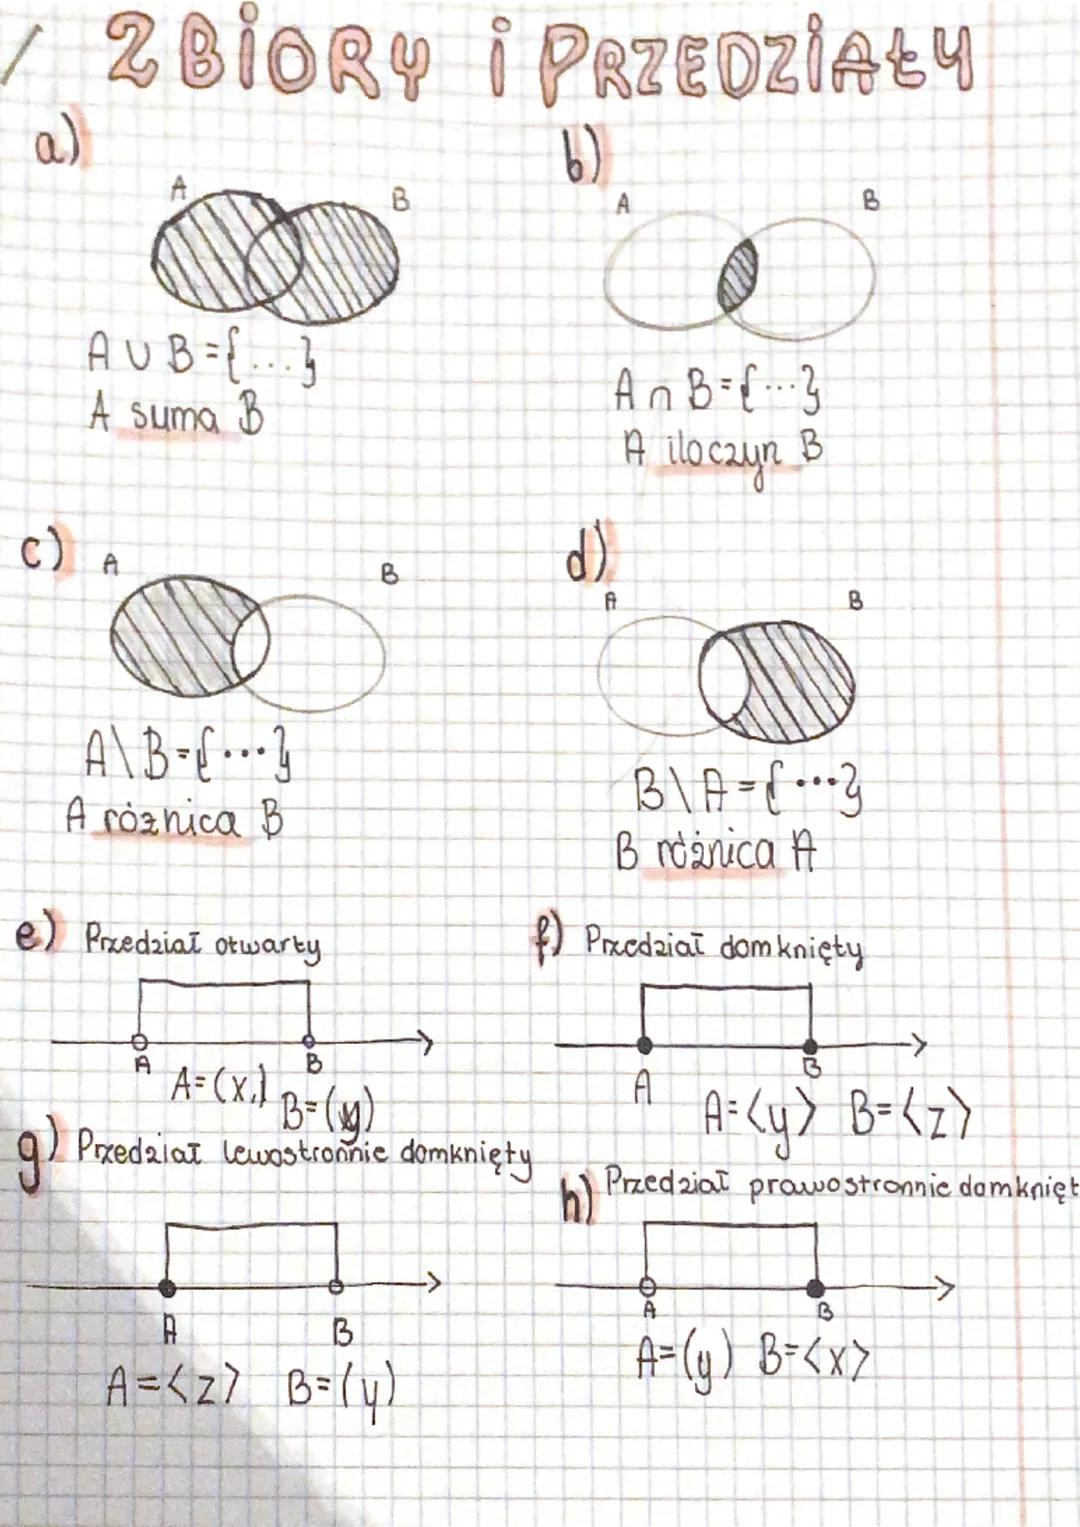 ZBiORY i PRZEDZiAŁY
a)
A B
A ∪ B = {...}
A suma B
b)
A B
A ∩ B = {...}
A iloczyn B
c)
A B
A \ B = {...}
A różnica B
d)
A B
B \ A = {...}
B różnica A
e) Przedział otwarty
A B
A = (x,) B = (y)
f) Przedział domknięty
A B
A = <y> B = <z>
g) Przedział lewostronnie domknięty
A B
A = <z> B = (y)
h) Przedział prawostronnie domknięt
A B
A = (y) B = <x>